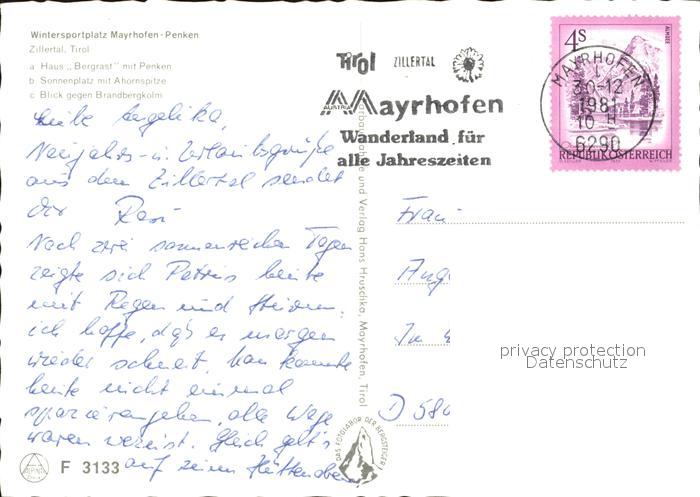 Wintersportplatz Mayrhofen - Penken
Zillertal, Tirol
a Haus „Bergrast" mit Penken
b. Sonnenplatz mit Ahornspitze
c Blick gegen Brandbergkolm
Liebe Angelika,
Neujahrs- u. Urlaubsgrüße
aus dem Zillertal sendet
Dir Resi
Nach zwei sonnenreichen Tagen
zeigte sich Petrus heute
mit Regen und Stürmen.
ich hoffe, daß es morgen
wieder schneit. Man konnte
heute nicht einmal
spazierengehen, alle Wege
waren vereist. Gleich geht's
auf einen Hüttenabend
F 3133
Hans Hruschka, Mayrhofen, Tirol
DAS FOTOLABOR DER BERGSTEIGER
Tirol ZILLERTAL
AUSTRIA Mayrhofen
Wanderland für
alle Jahreszeiten
4S
ALMSEE
REPUBLIK ÖSTERREICH
MAYRHOFEN
30-12
1981
10 H
6290
Frau
Ange
D 580
privacy protection
Datenschutz